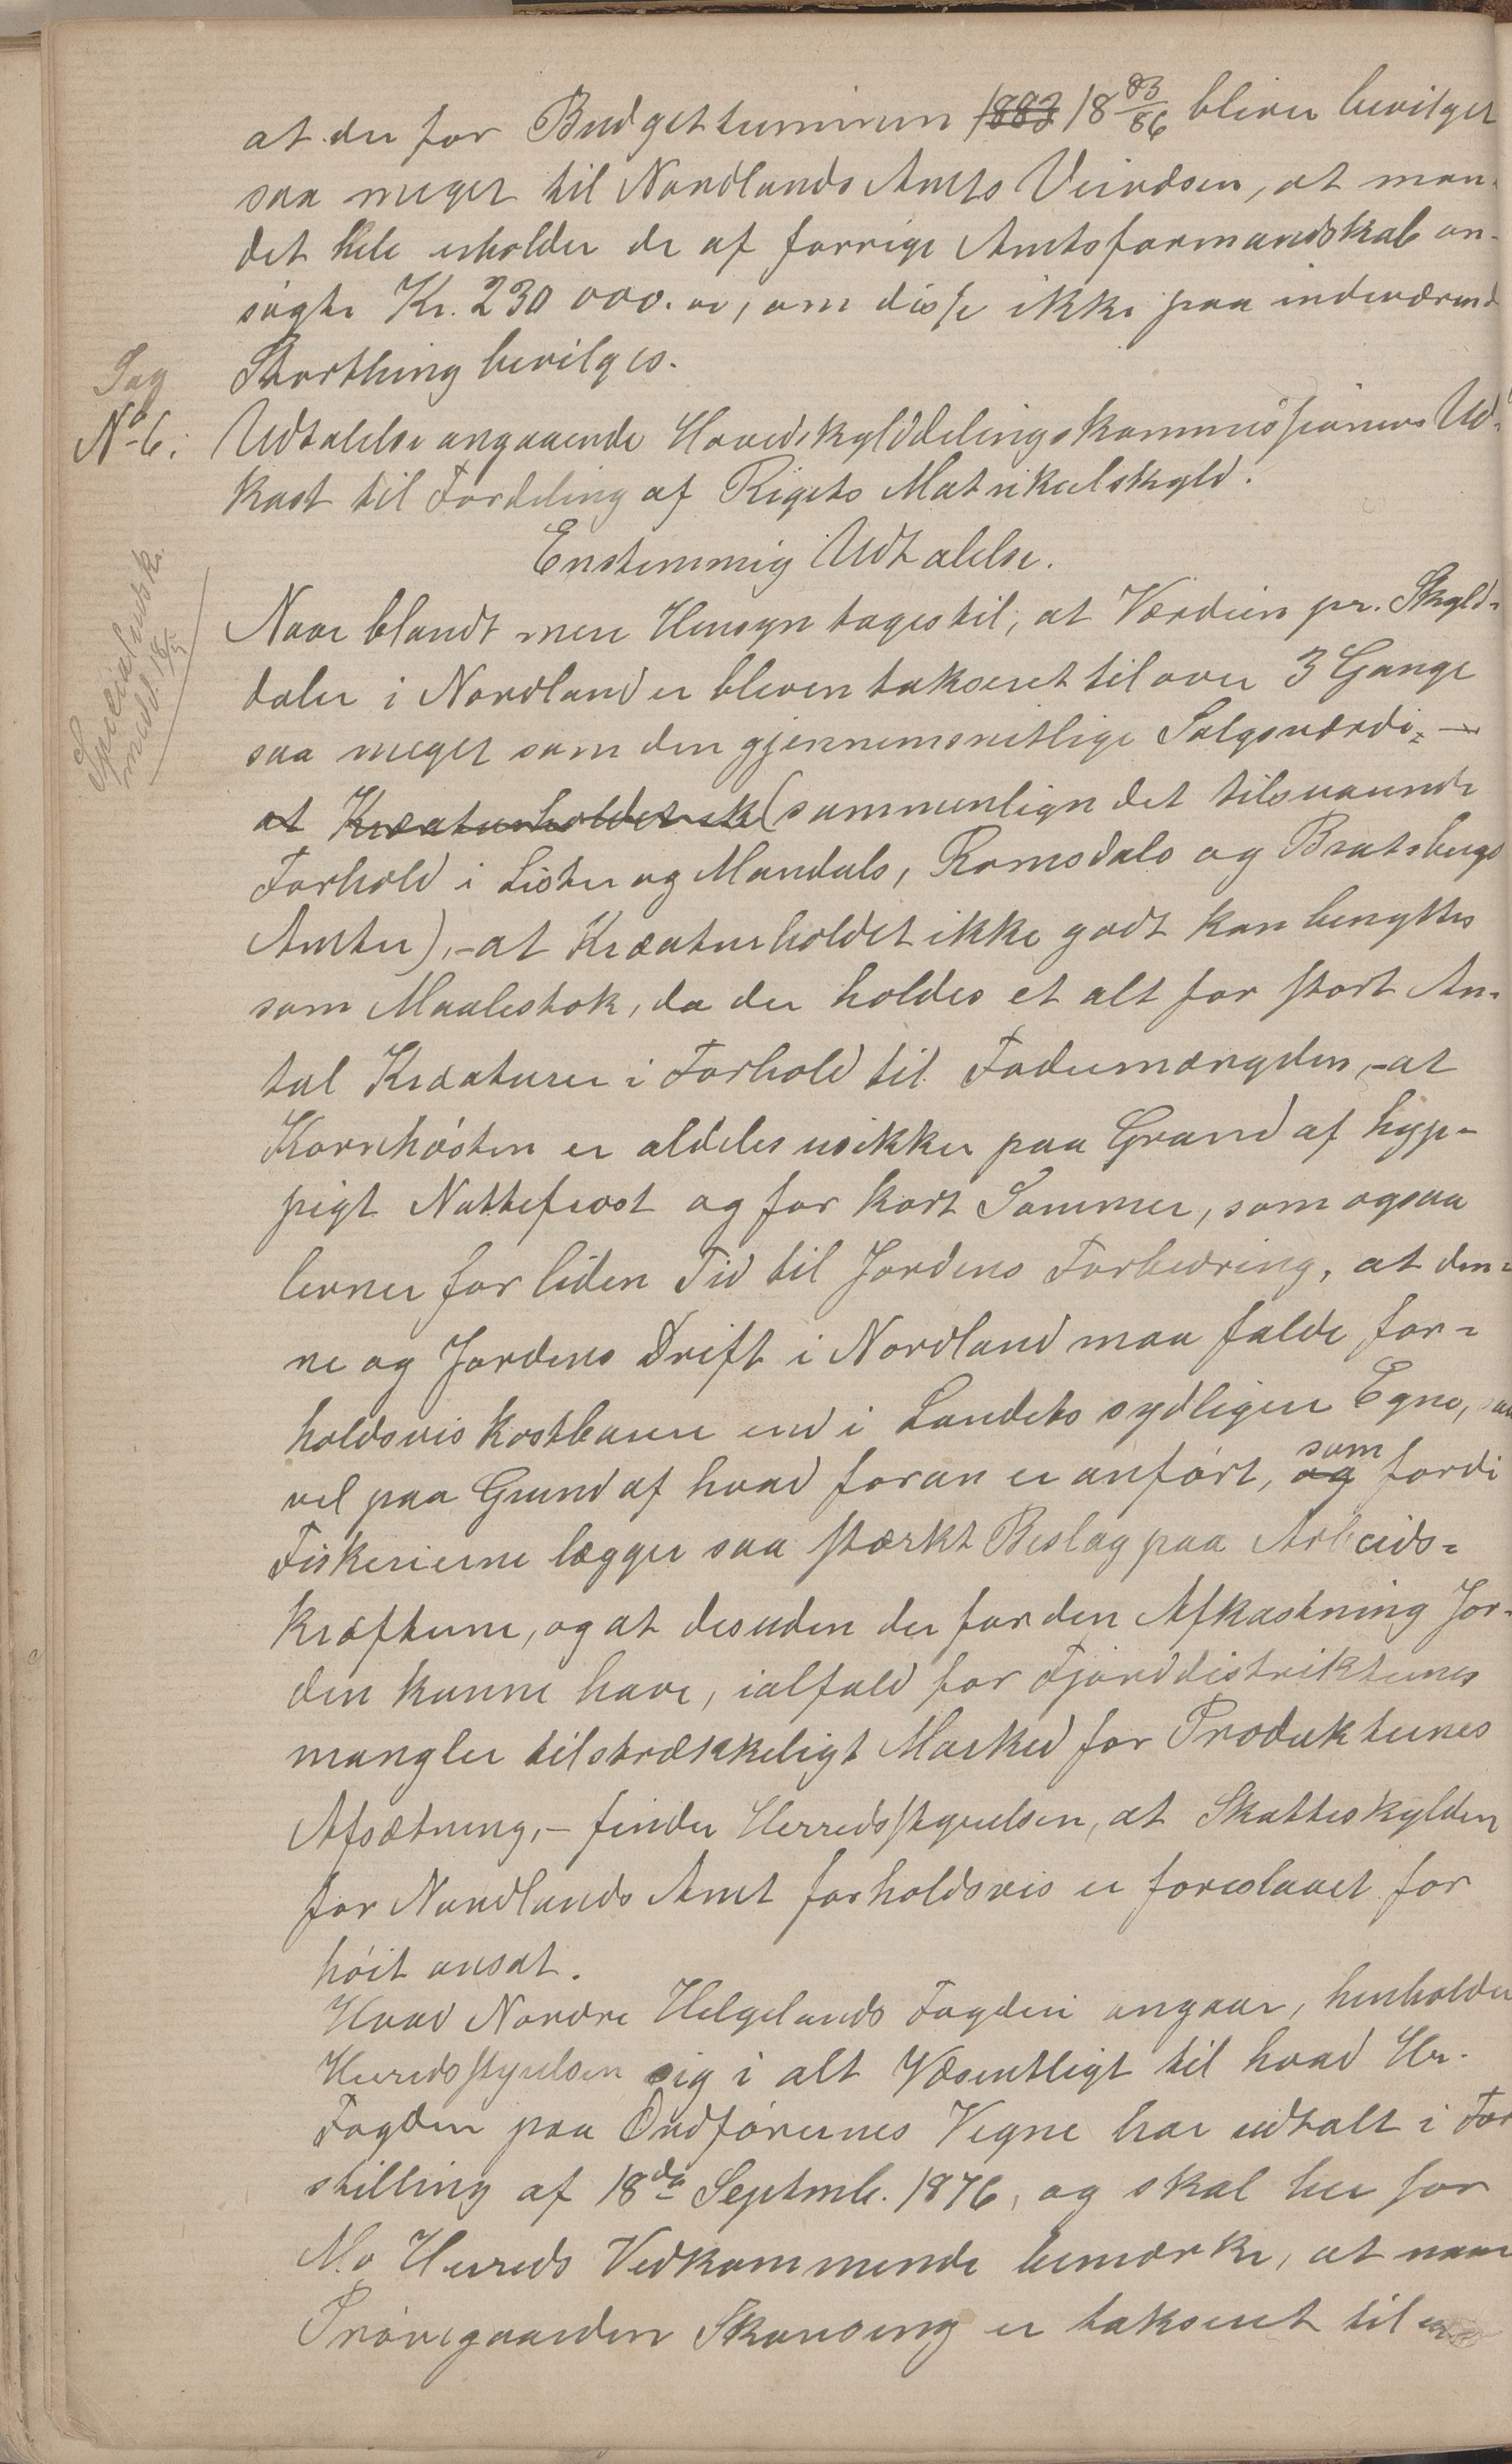 at der for Budgetterminen 1883 18 83/86 bliver bevilget
saa meget til Nordlands Amts Veivæsen, at man
det hele erholder de af forrige Amtsformandskab an-
søgte Kr. 230 000.00, om disse ikke paa indeværende
Storthing bevilges.
Sag
No 6.
Udtalelse angaaende Hovedskylddelingskommissionens Ud-
kast til Fordeling af Rigets Matrikulskyld.
Enstemmig Udtalelse.
Specialudskr.
medd. 18/5
Naar blandt mere Hensyn tages til, at Værdien pr. Skyld-
daler i Nordland er bleven takseret til over 3 Gange
saa meget som den gjennemsnitlige Salgsværdi, —
at Kreaturholdet ik (sammenlign det tilsvarende
Forhold i Lister og Mandals, Romsdals og Bratsbergs
Amter), - at Kreaturholdet ikke godt kan benyttes
som Maalestok, da der holdes et alt for stort An-
tal Kreaturer i Forhold til Fodermængden, - at
Kornhøsten er aldeles usikker paa Grund af hyp-
pigt Nattefrost og for kort Sommer, som ogsaa
levner for liden Tid til Jordens Forbedring, at den-
ne og Jordens Drift i Nordland maa falde for-
holdsvis kostbarere end i Landets sydligere Egne, saa
vel paa Grund af hvad foran er anført, og som fordi
Fiskerierne lægger saa stærkt Beslag paa Arbeids-
kræfterne, og at desuden der for den Afkastning Jor-
den kunne have, ialfald for Fjorddistrikternes
mangler tilstrækkeligt Marked for Produkternes
Afsætning, - finder Herredsstyrelsen, at Skatteskylden
for Nordlands Amt forholdsvis er foreslaaet for
høit ansat.
Hvad Nordre Helgelands Fogderi angaar, henholder
Herredsstyrelsen sig i alt Væsentligt til hvad Hr.
Fogden paa Ordførernes Vegne har udtalt i For
stilling af 18de Septmb. 1876, og skal her for
Mo Herreds Vedkommende bemærke, at naar
Prøvegaarden Skonseng er takseret til